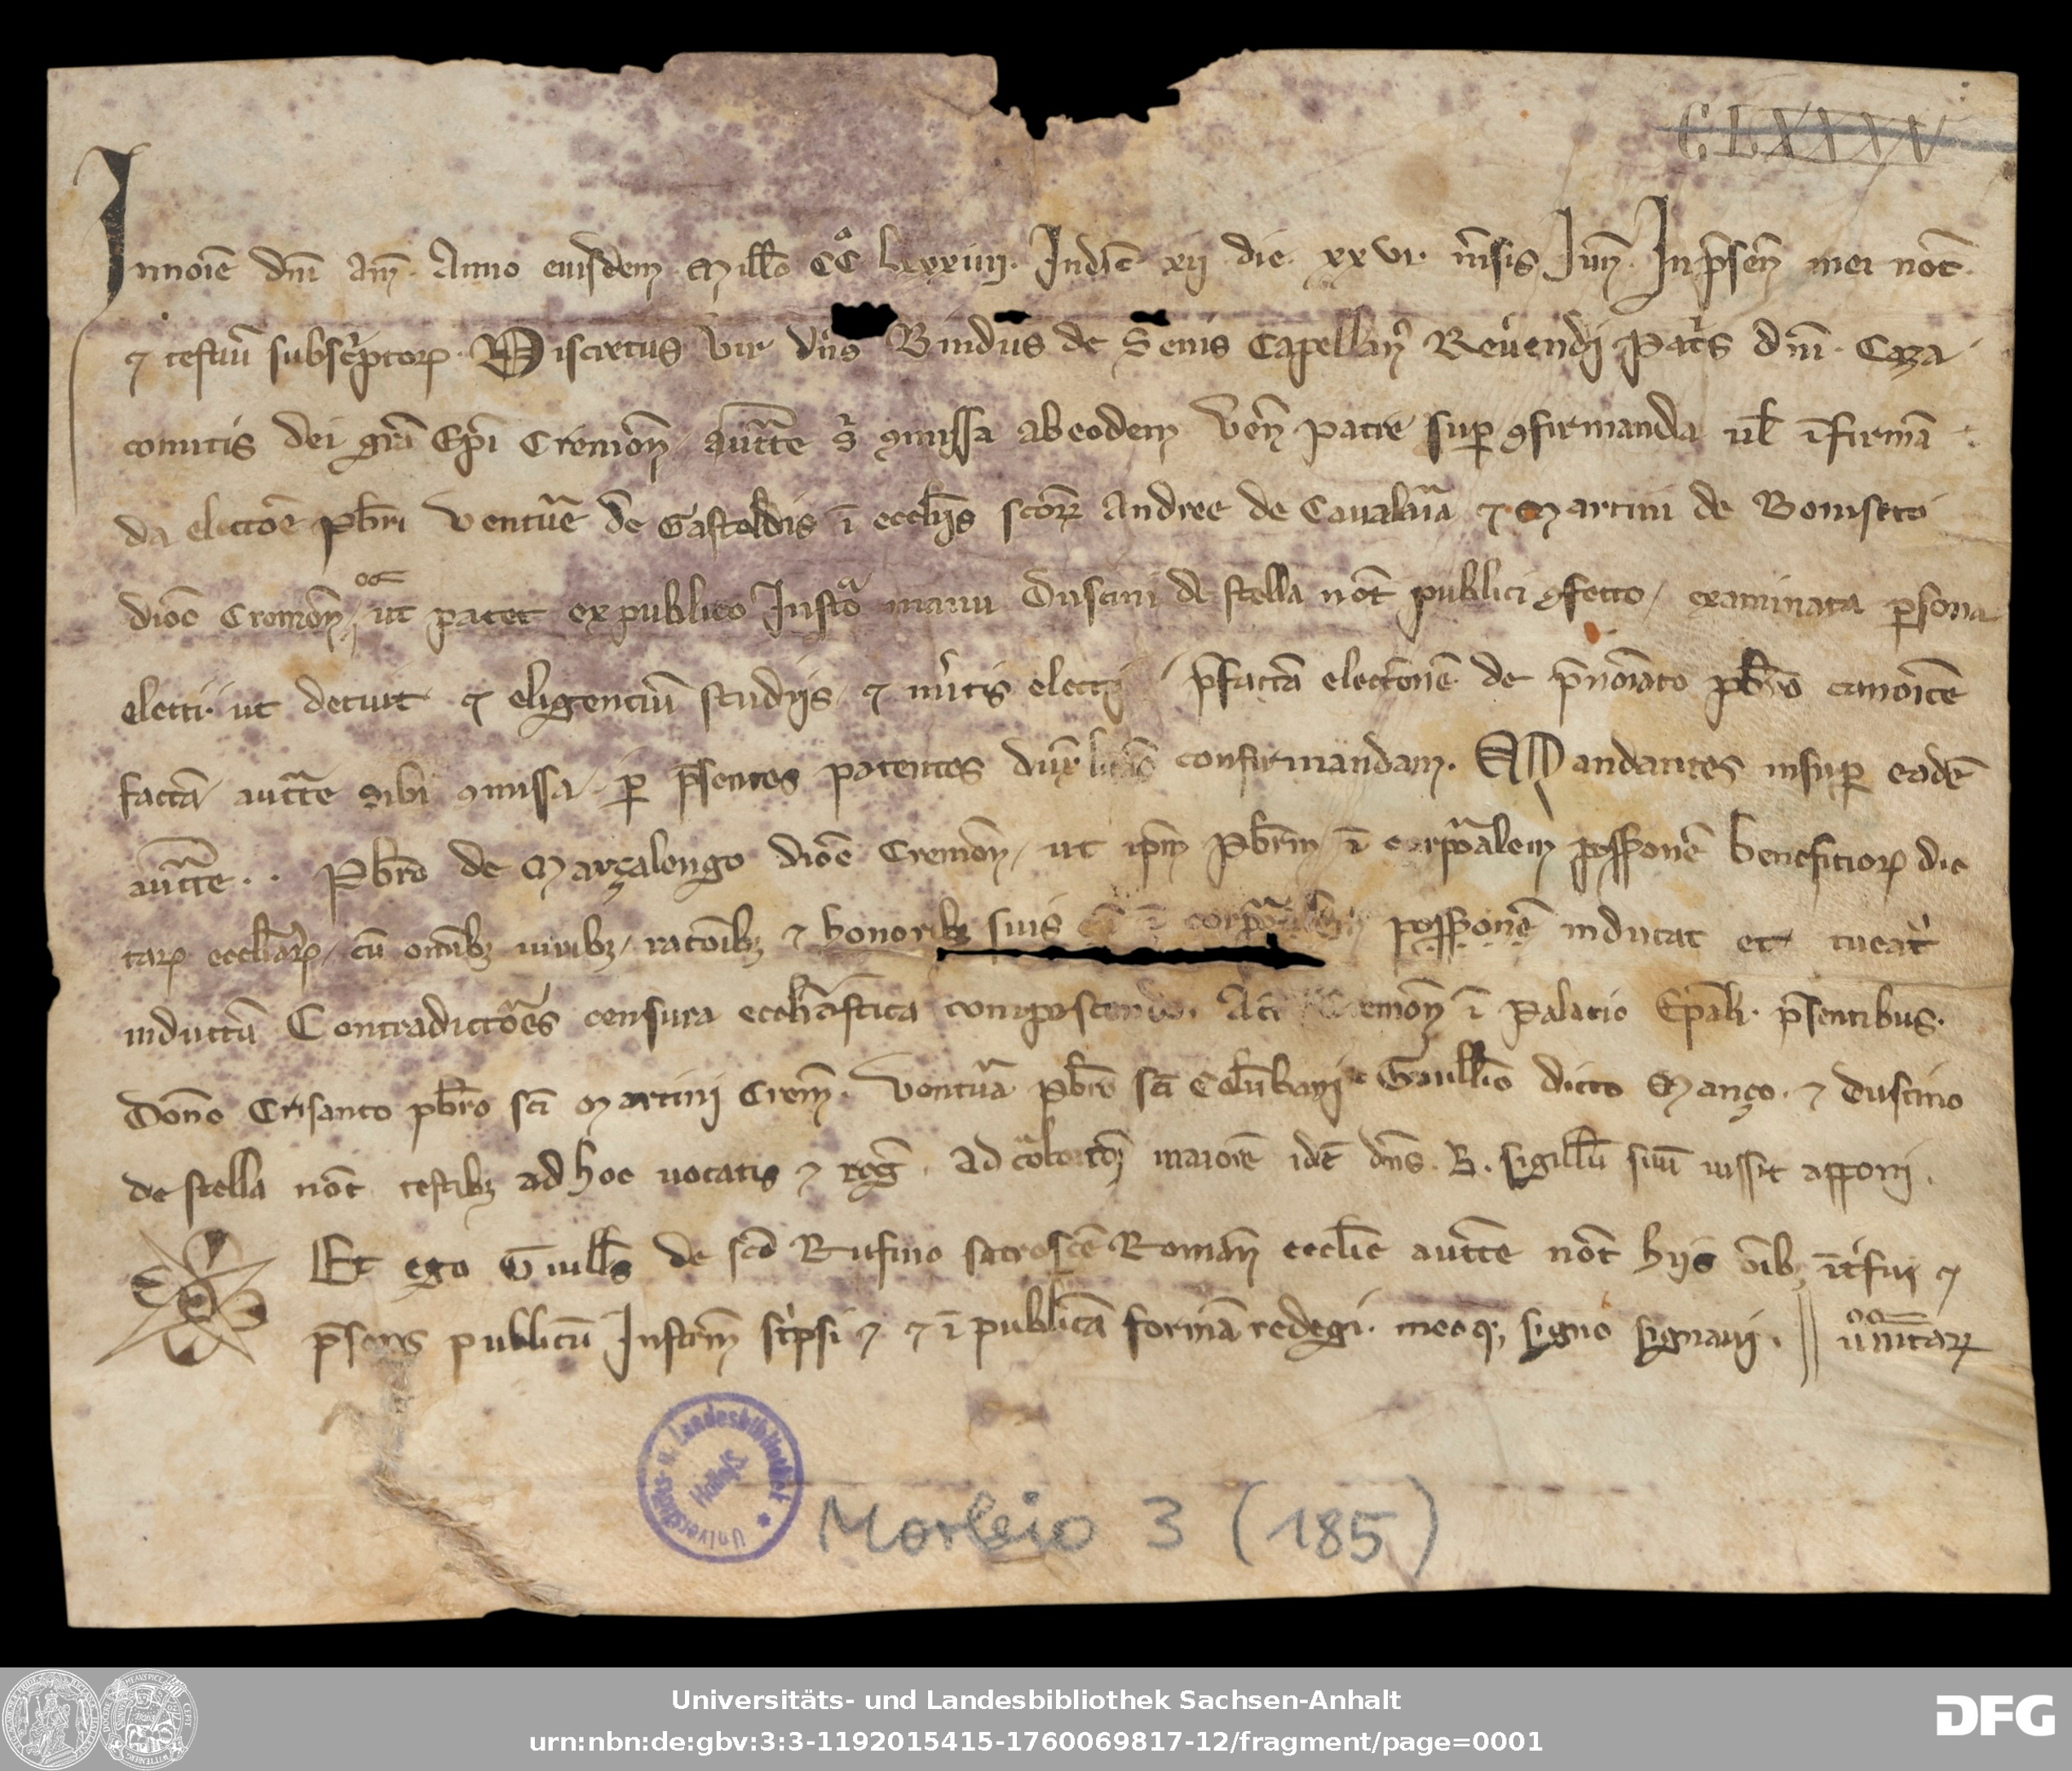 CLXXXV
In noīe dn̄i am̄. Anno eiusdem Mill̄o CC̊ lxxxiiij. Indic̄t xij die xxvi. m̄sis Iun̄. In p̄sen̄ mei not̄.
⁊ testiū subsc̓ptoꝝ. Discretus vir dn̄s Bindus de Senis Capellan᷒ Reu̓endi Pat̓s dn̄i. Caza
comitis dei gr̄a Ep̄i Cremon̄. auct̄te s᷒ ꝯmissa ab eodem Ven̄ patre suꝑ ꝯfirmanda ul̄ īfirmā
da electōe pbr̄i Ventur̄e de Gastoldis ī eccl̄iis sc̄oꝝ Andree de Caualar̄a ⁊ Martini de Boniseto
dioc̄ Cremon̄. ut patet ex publico Inst̄o manu Duscini de stella not̄ publici ꝯfecto, examinata ꝑsona
electi. ut decuit ⁊ eligenciū studijs, ⁊ m̓itis electi p̄factā electionē de p̄noīato pbr̄o canoīce
factā auct̄te sibi ꝯmissa. ꝑ p̄sentes patentes dux̄ confirmandam. Mandantes insuꝑ eadē
auct̄te . . Pbr̄o de Marçalengo dioc̄ Cremon̄, ut ip̄m Pbr̄m ī corꝑalem possionē beneficioꝝ dic
taꝝ eccl̄iaꝝ, cū om̄ibꝫ iuribꝫ, racōibꝫ ⁊ honoribꝫ suis ī corꝑalem possionē inducat et tueat᷑
inductū Contradictōres censura eccl̄iastica compescendo. Act̄ Cremon̄ ī Palatio Ep̄ali. p̄sentibus.
Dōno Crisanto pbr̄o sc̄i Martini Crem̄. Ventur̄a Pbr̄o sc̄i Columbani Guill̄o dicto Manço. ⁊ Duscino
de stella not̄ testibꝫ ad hoc uocatis ⁊ roḡ. ad maiorē idē dn̄s. B. sigillū suū iussit apponi.
Et ego Guill̄s de sc̄o Rufino sacrosc̄e Roman̄ eccl̄ie auct̄te not̄ hijs oībꝫ īt̓fui ⁊
p̄sens publicū Inst̄m sc̓psi ⁊ ⁊ ī publicā formā redegi. meoqꝫ signo signaui. || ūnitaꝝ
Universitäts- u. Landesbibliothek Halle/S
Morbio 3 (185)
Universitäts- und Landesbibliothek Sachsen-Anhalt
urn:nbn:de:gbv:3:3-1192015415-1760069817-12/fragment/page=0001
DFG